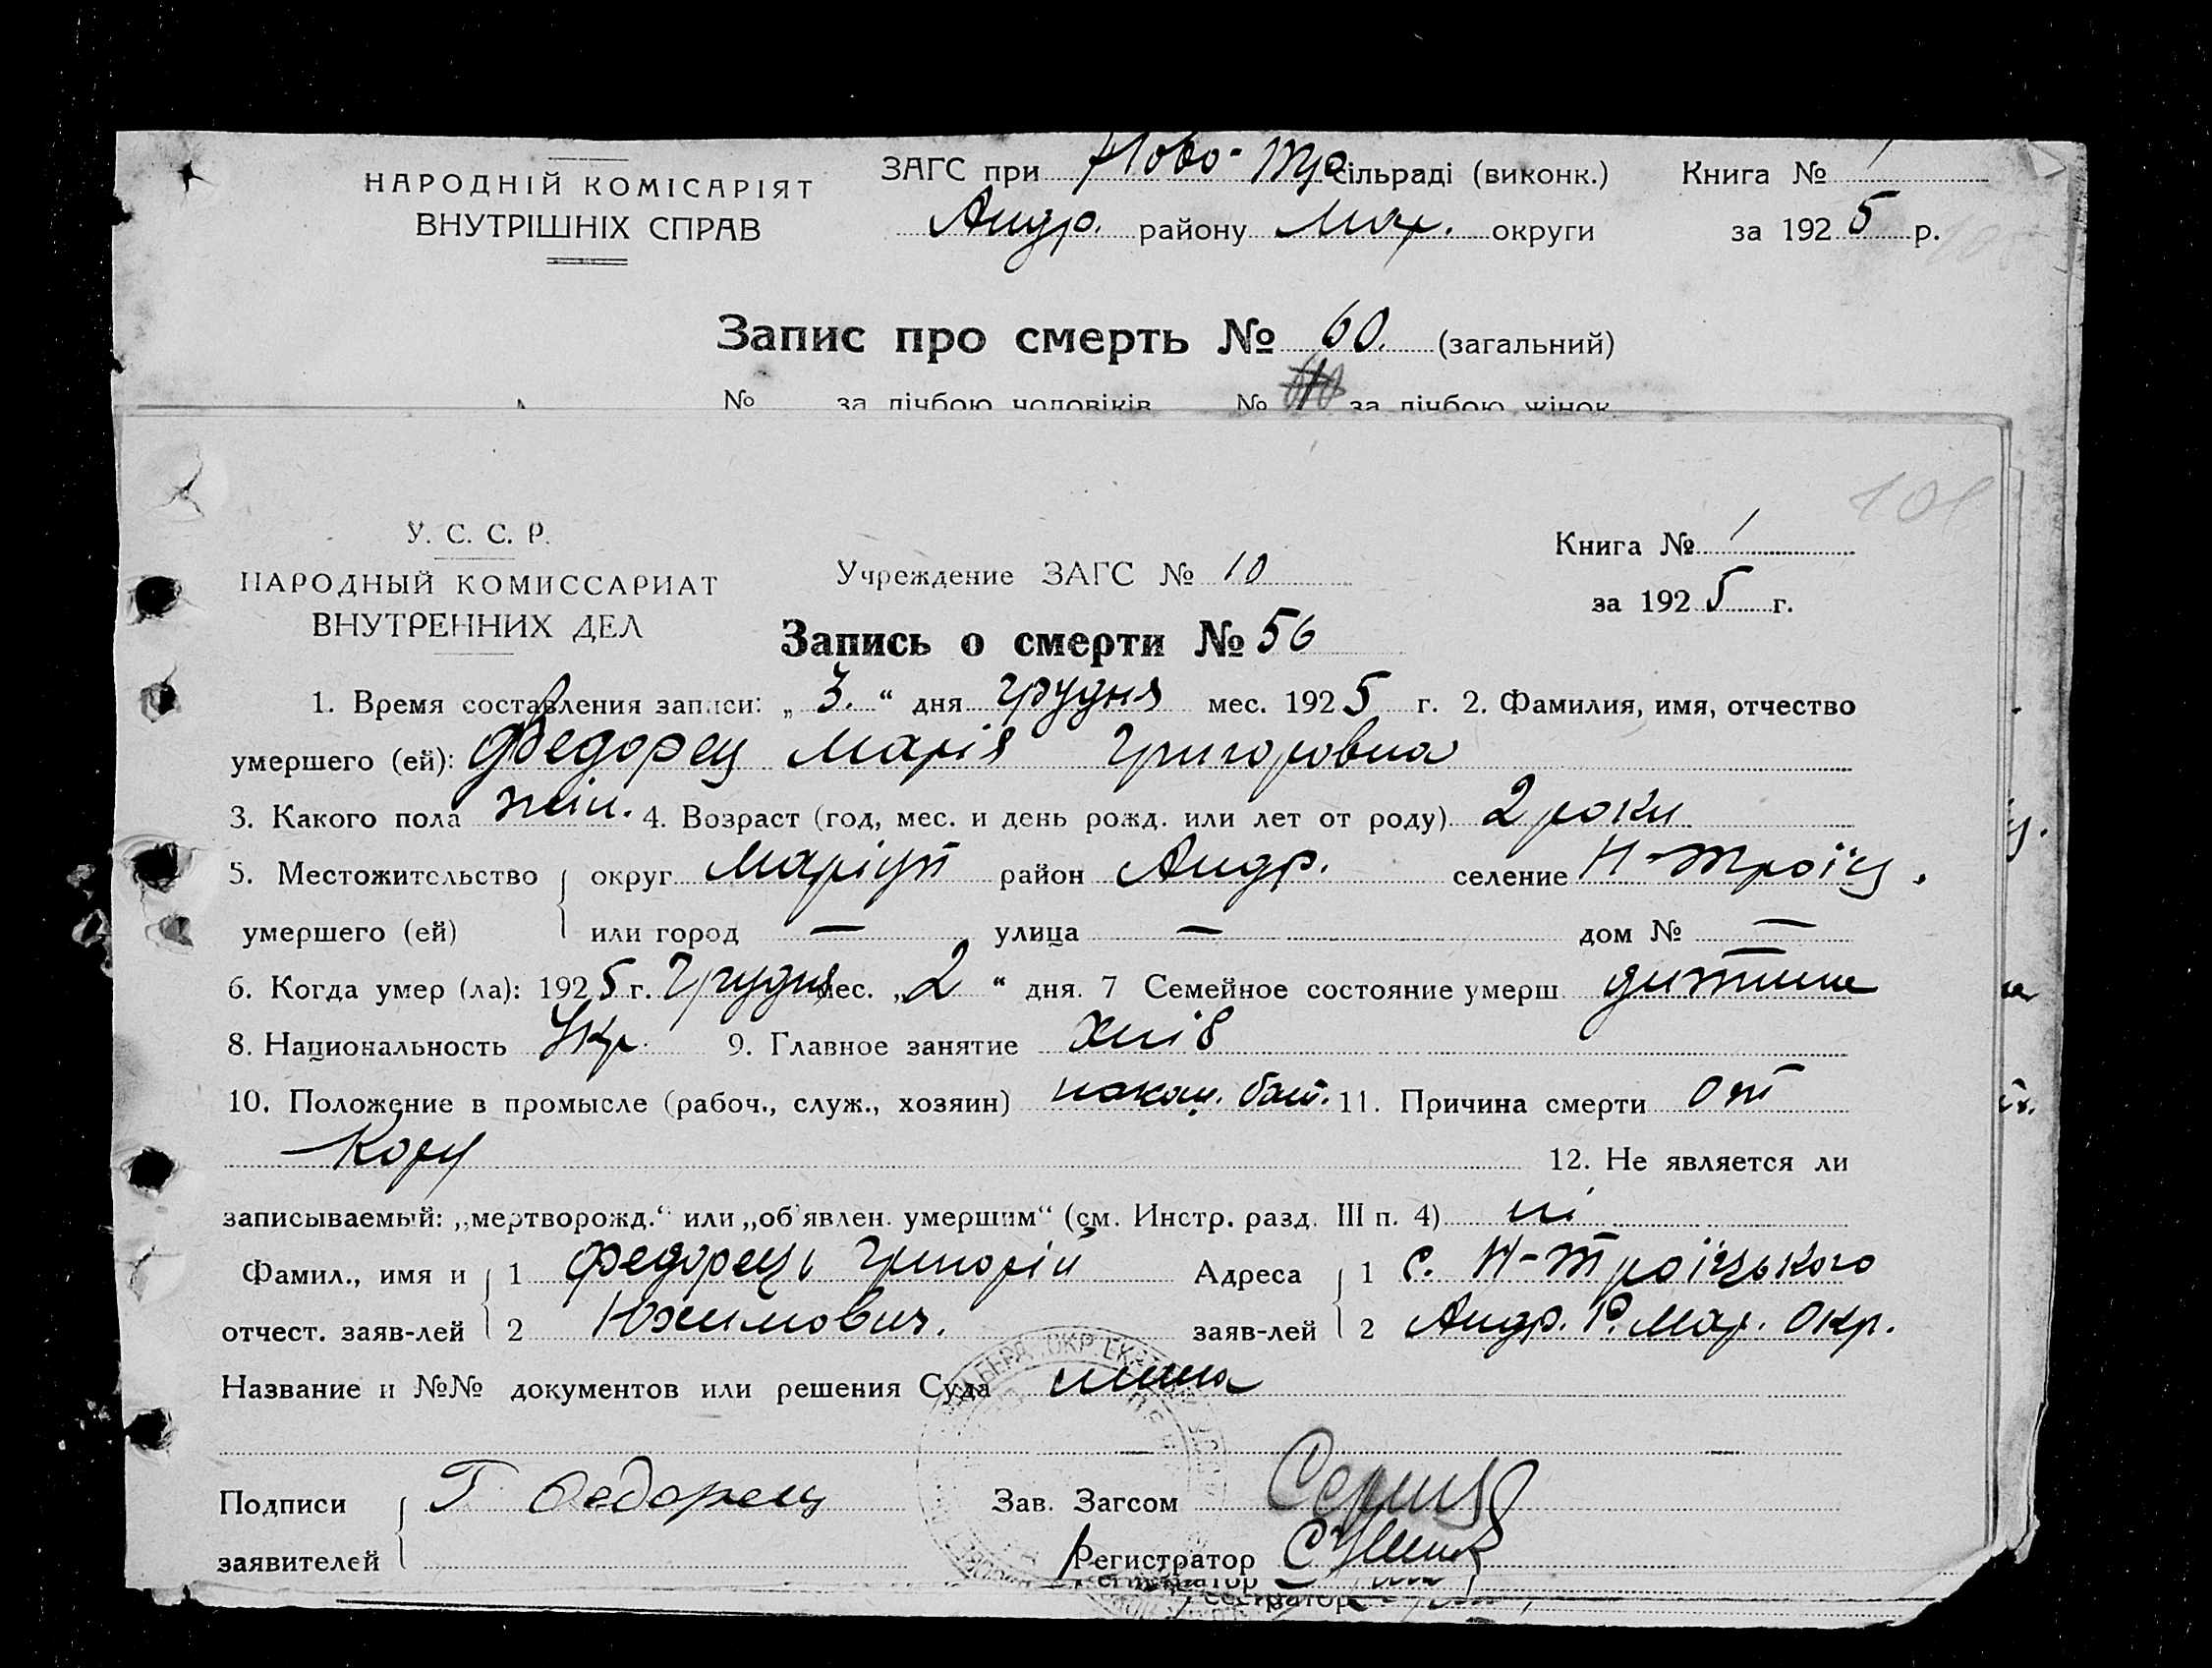 НАРОДНІЙ КОМІСАРІЯТ
ВНУТРІШНІХ СПРАВ
ЗАГС при Ново-Тро сільраді (виконк.)
Андр. району Мар. округи
Книга № 1
за 1925 р.
Запис про смерть № 60. (загальний)
№ за лічбою чоловіків № за лічбою жінок
101
У. С. С. Р.
НАРОДНЫЙ КОМИССАРИАТ
ВНУТРЕННИХ ДЕЛ
Учреждение ЗАГС № 10
Книга № 1
за 1925 г.
Запись о смерти № 56
1. Время составления записи: „3.“ дня грудня мес. 1925 г. 2. Фамилия, имя, отчество
умершего (ей): Федорец Марія Григоровна
3. Какого пола жін. 4. Возраст (год, мес. и день рожд. или лет от роду) 2 роки
5. Местожительство округ Маріуп район Андр. селение Н-Троїц.
умершего (ей) или город — улица — дом № —
6. Когда умер (ла): 1925 г. Грудня мес. „2“ дня. 7 Семейное состояние умерш. дитина
8. Национальность Укр. 9. Главное занятие Хліб
10. Положение в промысле (рабоч., служ., хозяин) бат. 11. Причина смерти от
Кору
12. Не является ли
записываемый: „мертворожд.“ или „об'явлен. умершим“ (см. Инстр. разд. III п. 4) ні
Фамил., имя и 1 Федорець Григорій Адреса 1 с. Н-Троїцького
отчест. заяв-лей 2 Юхимович. заяв-лей 2 Андр. Р. Мар. Окр.
Название и №№ документов или решения Суда нема
Подписи Г Федорец Зав. Загсом
заявителей Регистратор